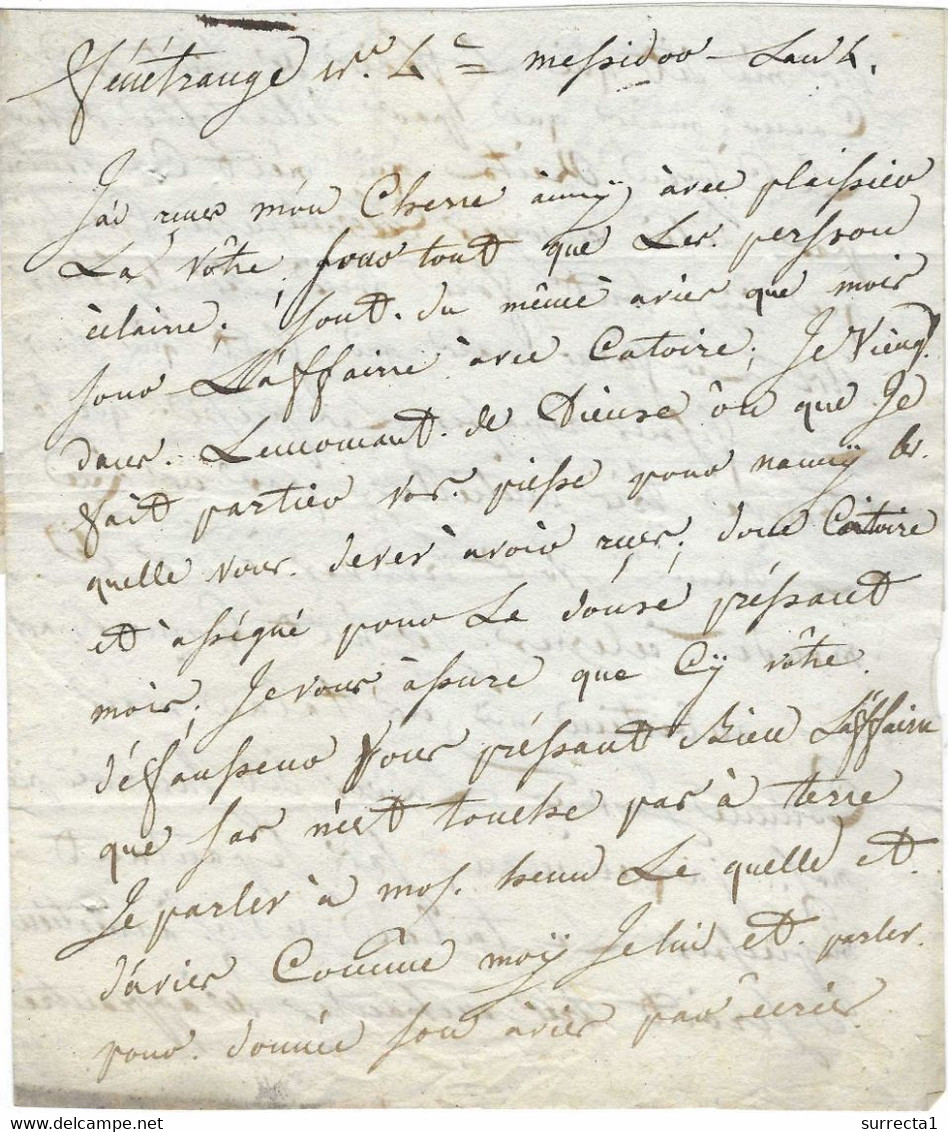 fénétrange le 4e = messidor Lan 4.
J'ai reçues mon Cherre àmÿ àvec plaissier
La vôtre, sour tout que Les. persson
èclaire. sont. du même àvies que mois
sour L'àffaire àvec Catoire, Je Viens
dans. Lemomant. de Dieuse ôu que Je
fait partier vos. piesse pour nancÿ les.
quelle vous. dever àvoir reçues; donc Catoire
et àsségné pour Le douse préssant
mois, Je vous àssure que Cÿ vôtre
déffansseur vous préssant Bien L'àffaire
que sas n'est touche pas à terre
Je parler à mos. henn Le quelle et
d'àvies Comme moÿ Je lui et parler
pour donnée son àvies par écries
surrecta1